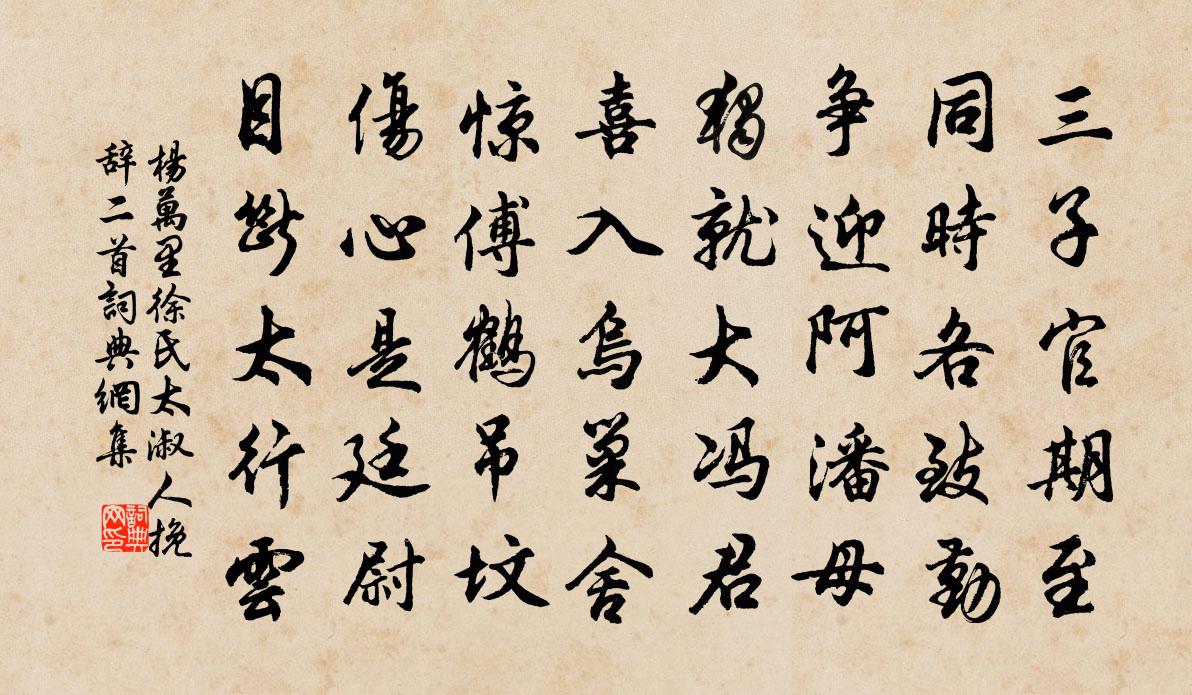 三子官期至
同時各致勤
争迎阿潘母
獨就大冯君
喜入烏巢舍
惊傅鶴吊坟
傷心是廷尉
目斷太行雲
楊萬里徐氏太淑人挽
辞二首詞典網集
詞典
网印